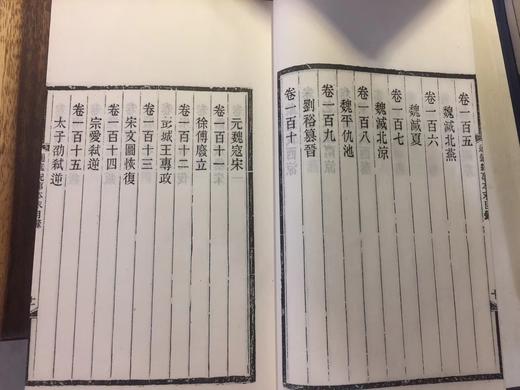 卷一百五
魏滅北燕
卷一百六
魏滅夏
卷一百七
魏滅北涼
卷一百八
魏平仇池
卷一百九
劉裕篡晉
卷一百十
元魏寇宋
卷一百十一
徐傅廢立
卷一百十二
彭城王專政
卷一百十三
宋文圖恢復
卷一百十四
宗愛弒逆
卷一百十五
太子劭弒逆